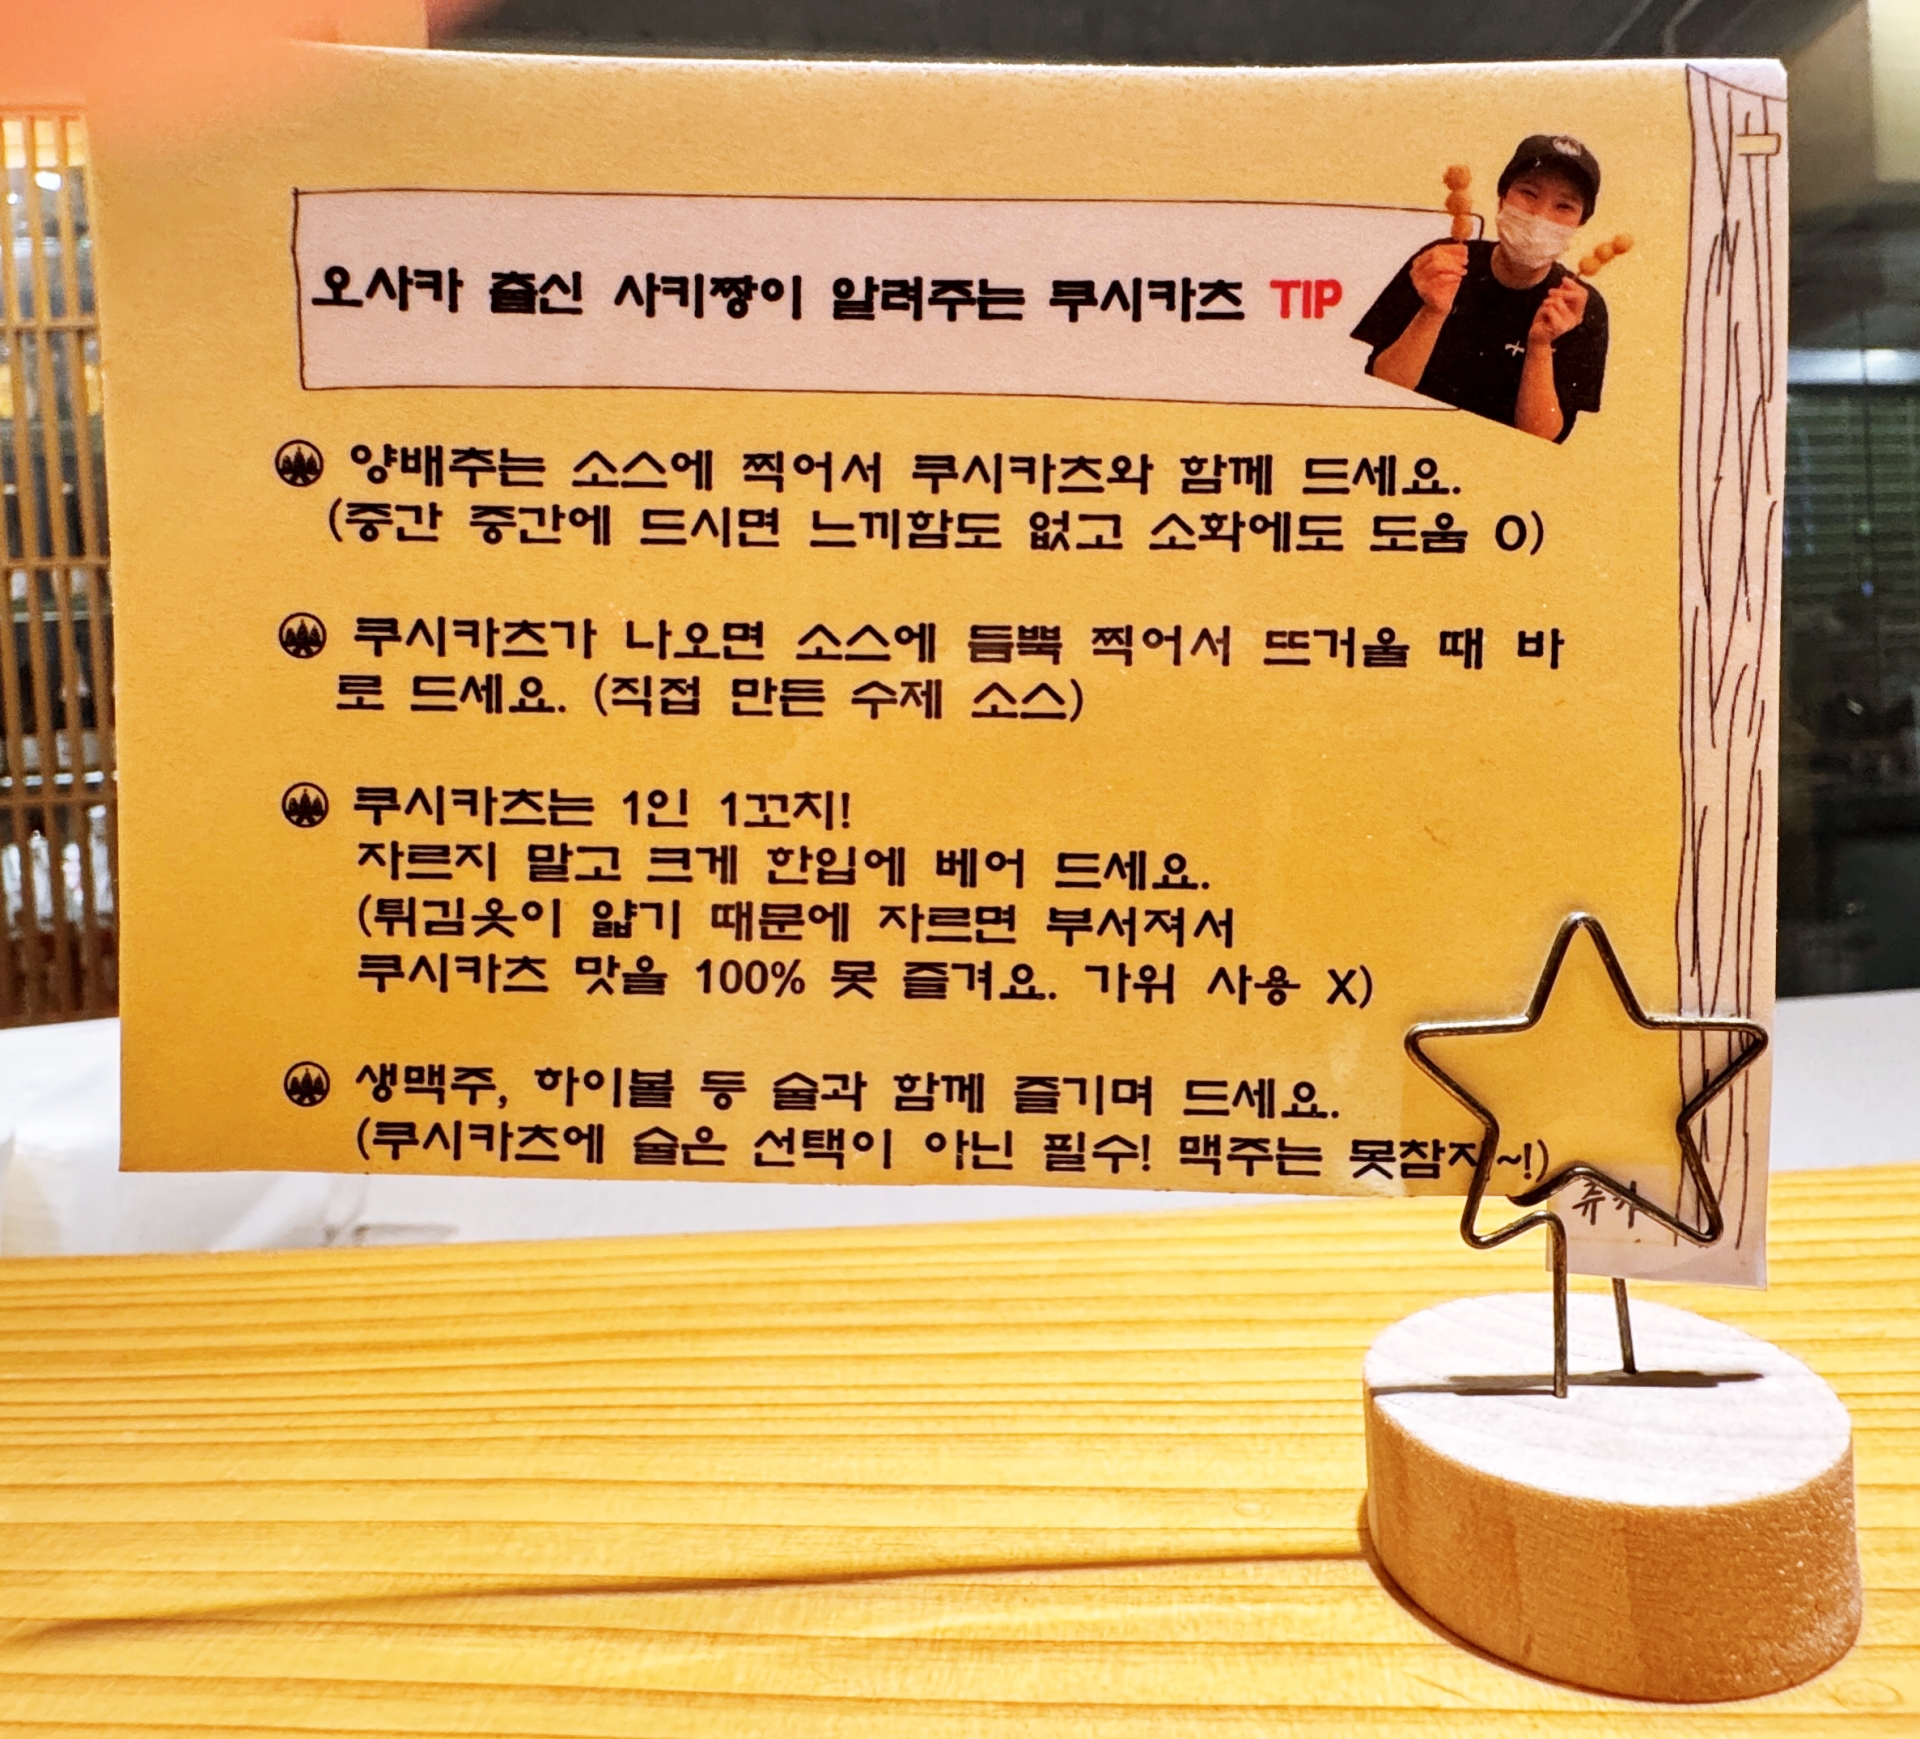 오사카 출신 사키짱이 알려주는 쿠시카츠 TIP
양배추는 소스에 찍어서 쿠시카츠와 함께 드세요.
(중간 중간에 드시면 느끼함도 없고 소화에도 도움 O)
쿠시카츠가 나오면 소스에 듬뿍 찍어서 뜨거울 때 바
로 드세요. (직접 만든 수제 소스)
쿠시카츠는 1인 1꼬치!
자르지 말고 크게 한입에 베어 드세요.
(튀김옷이 얇기 때문에 자르면 부서져서
쿠시카츠 맛을 100% 못 즐겨요. 가위 사용 X)
생맥주, 하이볼 등 술과 함께 즐기며 드세요.
(쿠시카츠에 술은 선택이 아닌 필수! 맥주는 못참지~!)